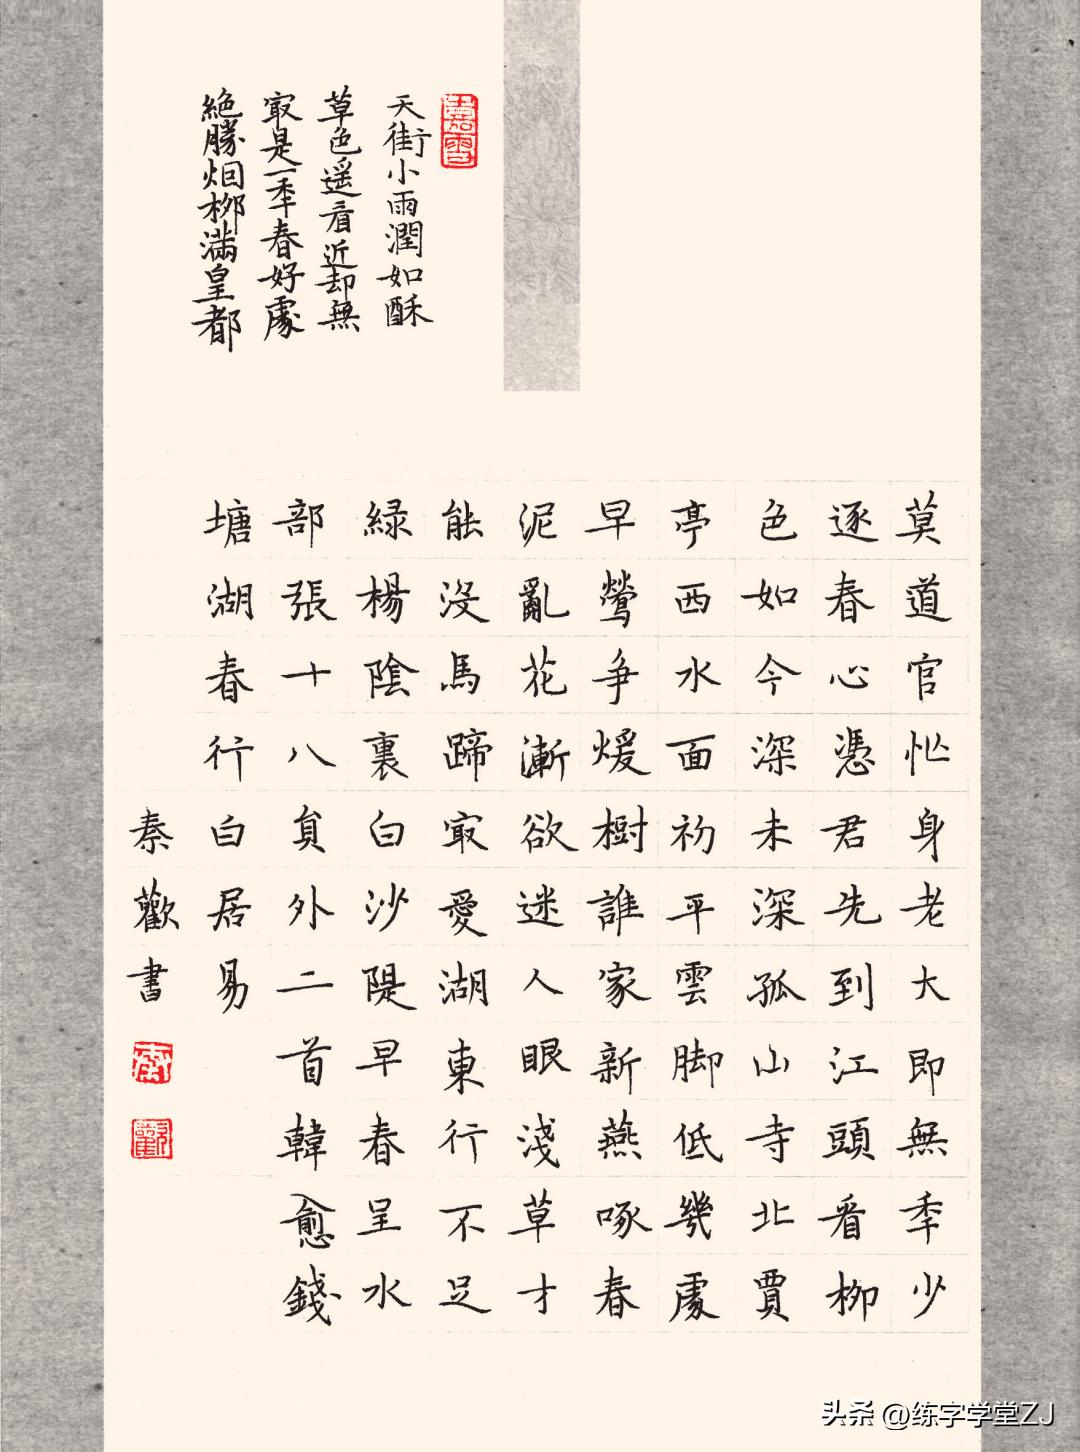 天街小雨潤如酥
草色遥看近却無
冣是一秊春好處
絶勝烟柳滿皇都
莫道官忙身老大即無秊少
逐春心憑君先到江頭看柳
色如今深未深孤山寺北賈
亭西水面初平雲脚低幾處
早鶯爭煖樹誰家新燕啄春
泥亂花漸欲迷人眼淺草才
能没馬蹄冣愛湖東行不足
緑楊陰裏白沙隄早春呈水
部張十八員外二首韓愈錢
塘湖春行白居易
秦歡書
头条 @练字学堂ZJ